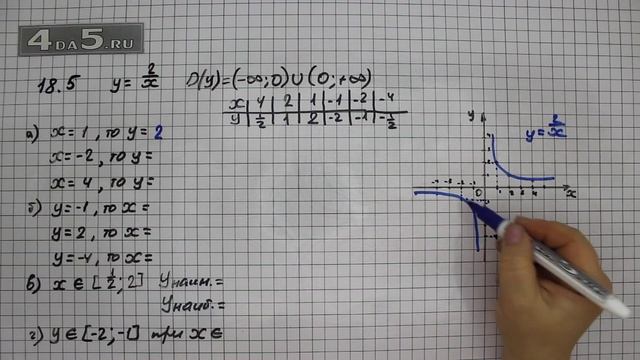 4DA5.RU
18.5 y = 2/x D(y)=(-∞;0)∪(0;+∞)
x | 4 | 2 | 1 | -1 | -2 | -4
y | 1/2 | 1 | 2 | -2 | -1 | -1/2
y
y = 2/x
0
x
а) x = 1, то y = 2
x = -2, то y =
x = 4, то y =
б) y = -1, то x =
y = 2, то x =
y = -4, то x =
в) x ∈ [1/2; 2] Yнаим. =
Yнаиб. =
г) y ∈ [-2; -1] при x ∈